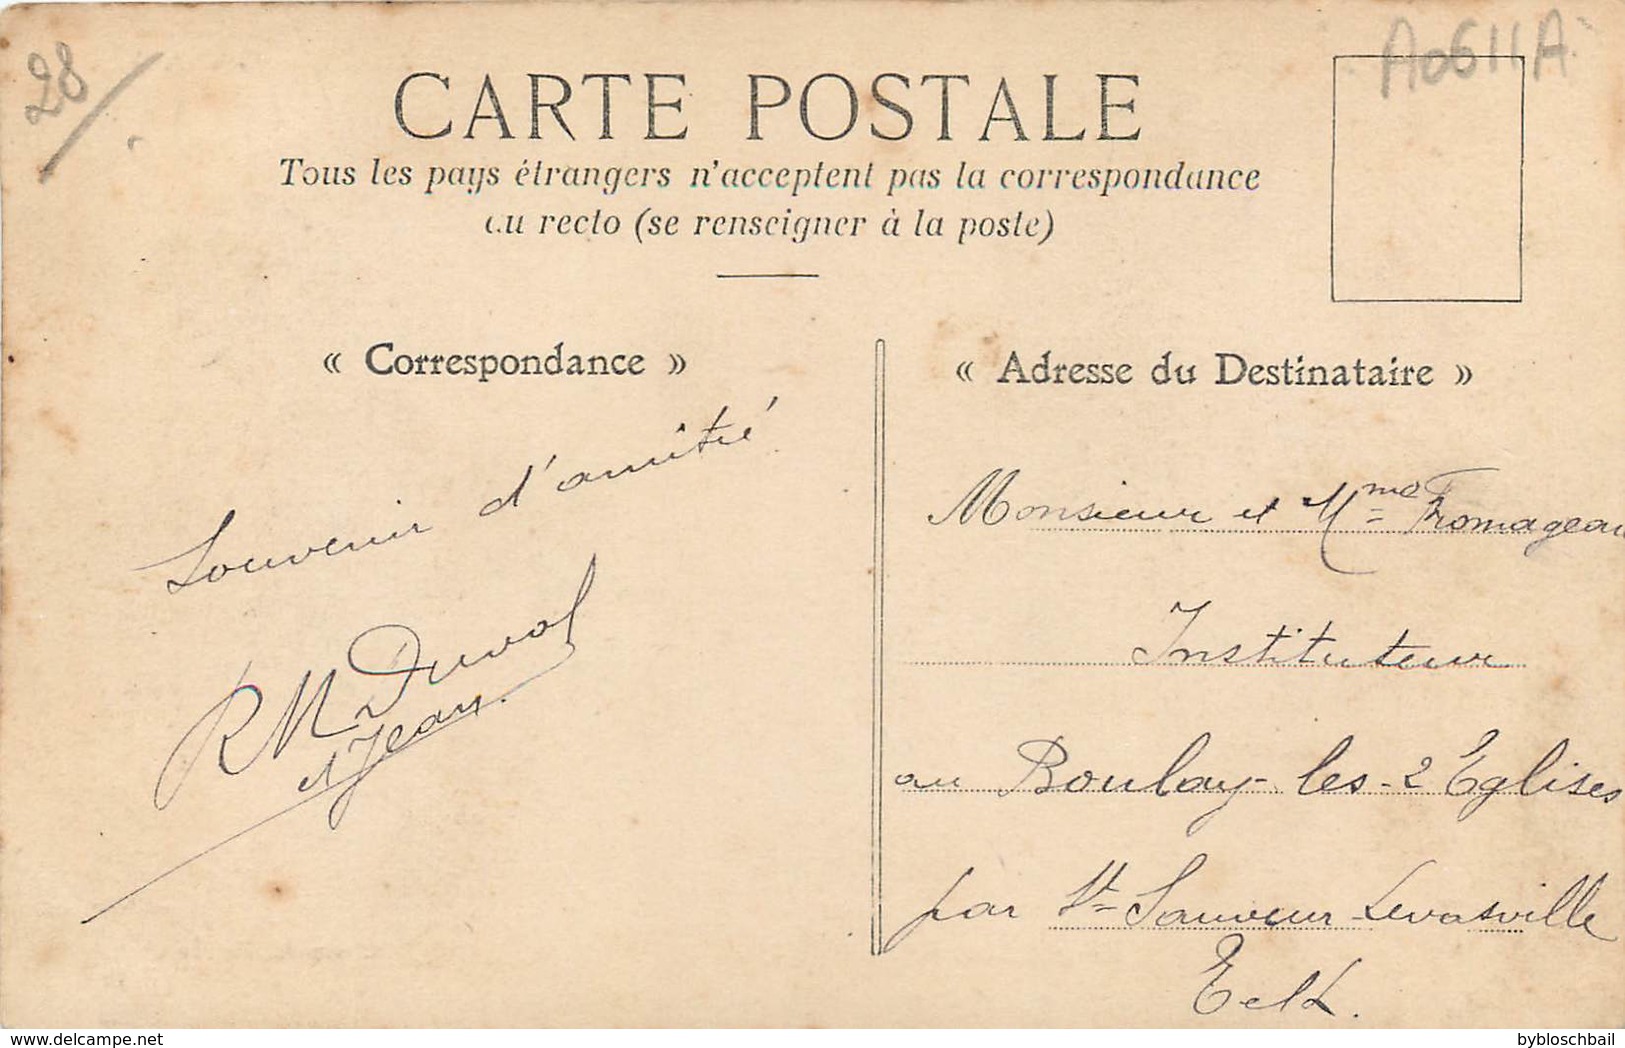 28
A0611A
CARTE POSTALE
Tous les pays étrangers n'acceptent pas la correspondance
au recto (se renseigner à la poste)
« Correspondance »
« Adresse du Destinataire »
Souvenir d'amitié
RM Duval
et Jean.
Monsieur et Mme Fromageau
Instituteur
au Boulay-les-2 Eglises
par St Sauveur Levasville
E et L.
delcampe.net
bybloschbail